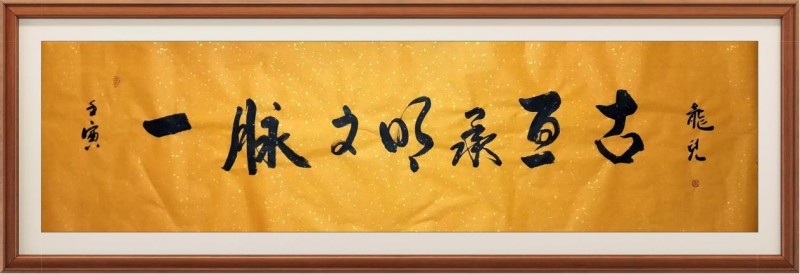 壬寅
一脉文明承亘古